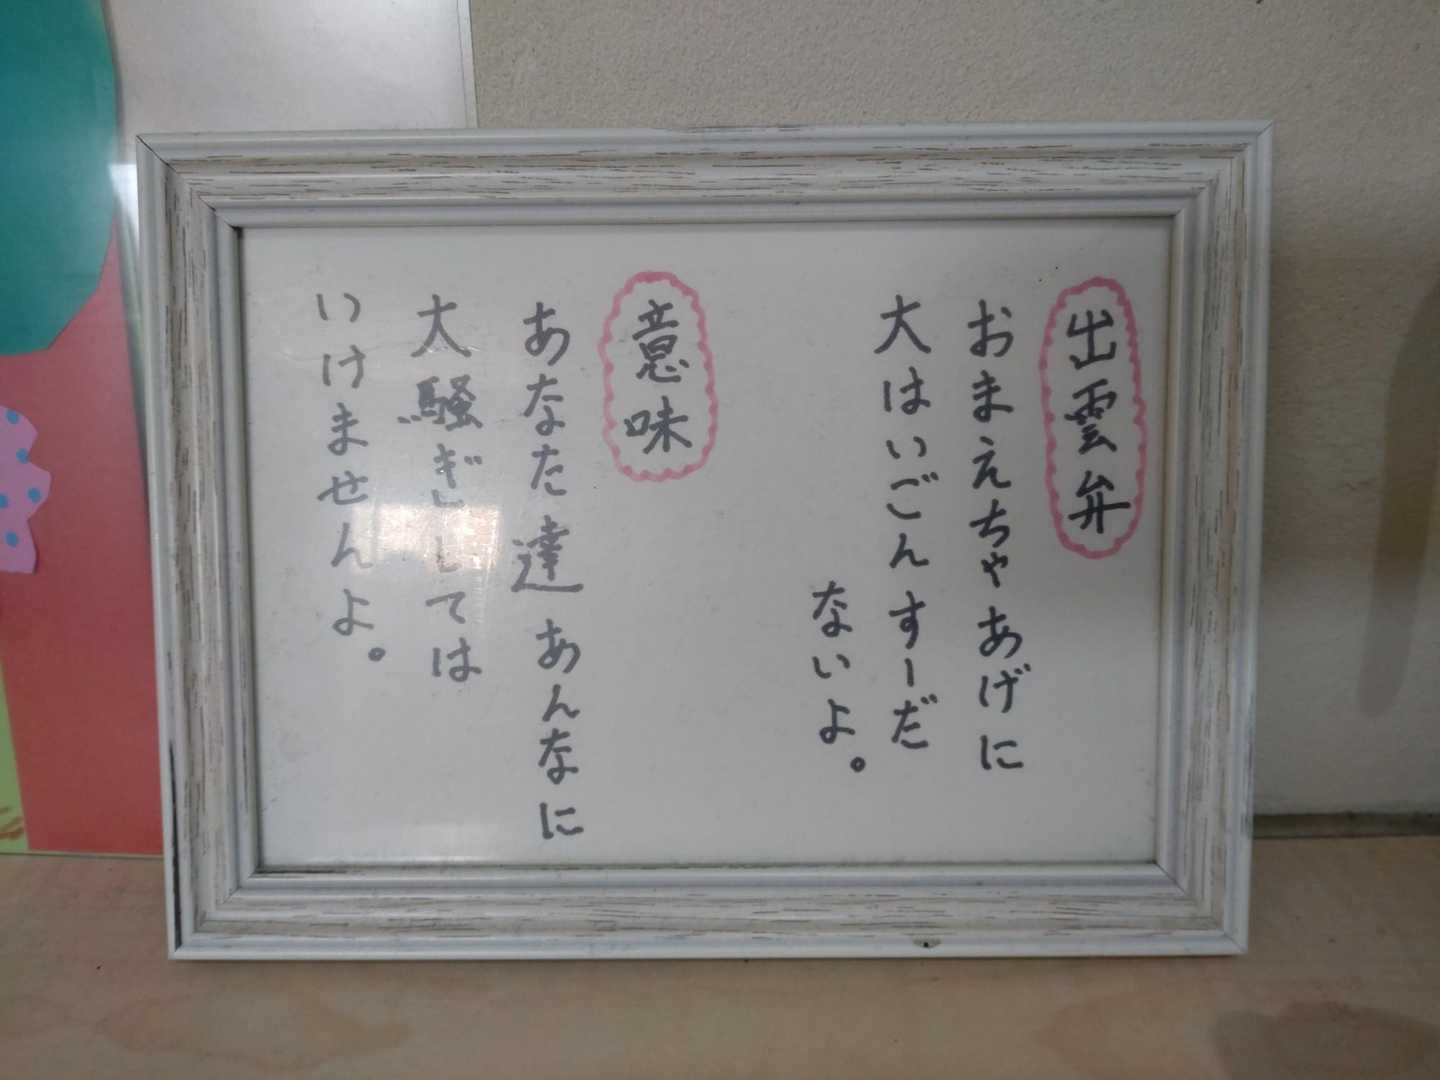 出雲弁
おまえちゃあげに
大はいごんすーだ
ないよ。
意味
あなた達あんなに
大騒ぎしては
いけませんよ。